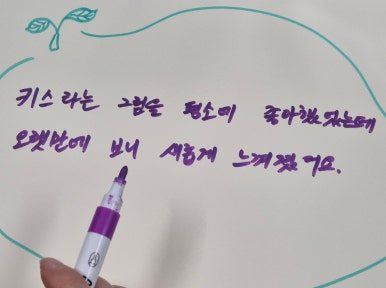 키스 라는 그림을 평소에 좋아했었는데
오랫만에 보니 새롭게 느껴졌어요.